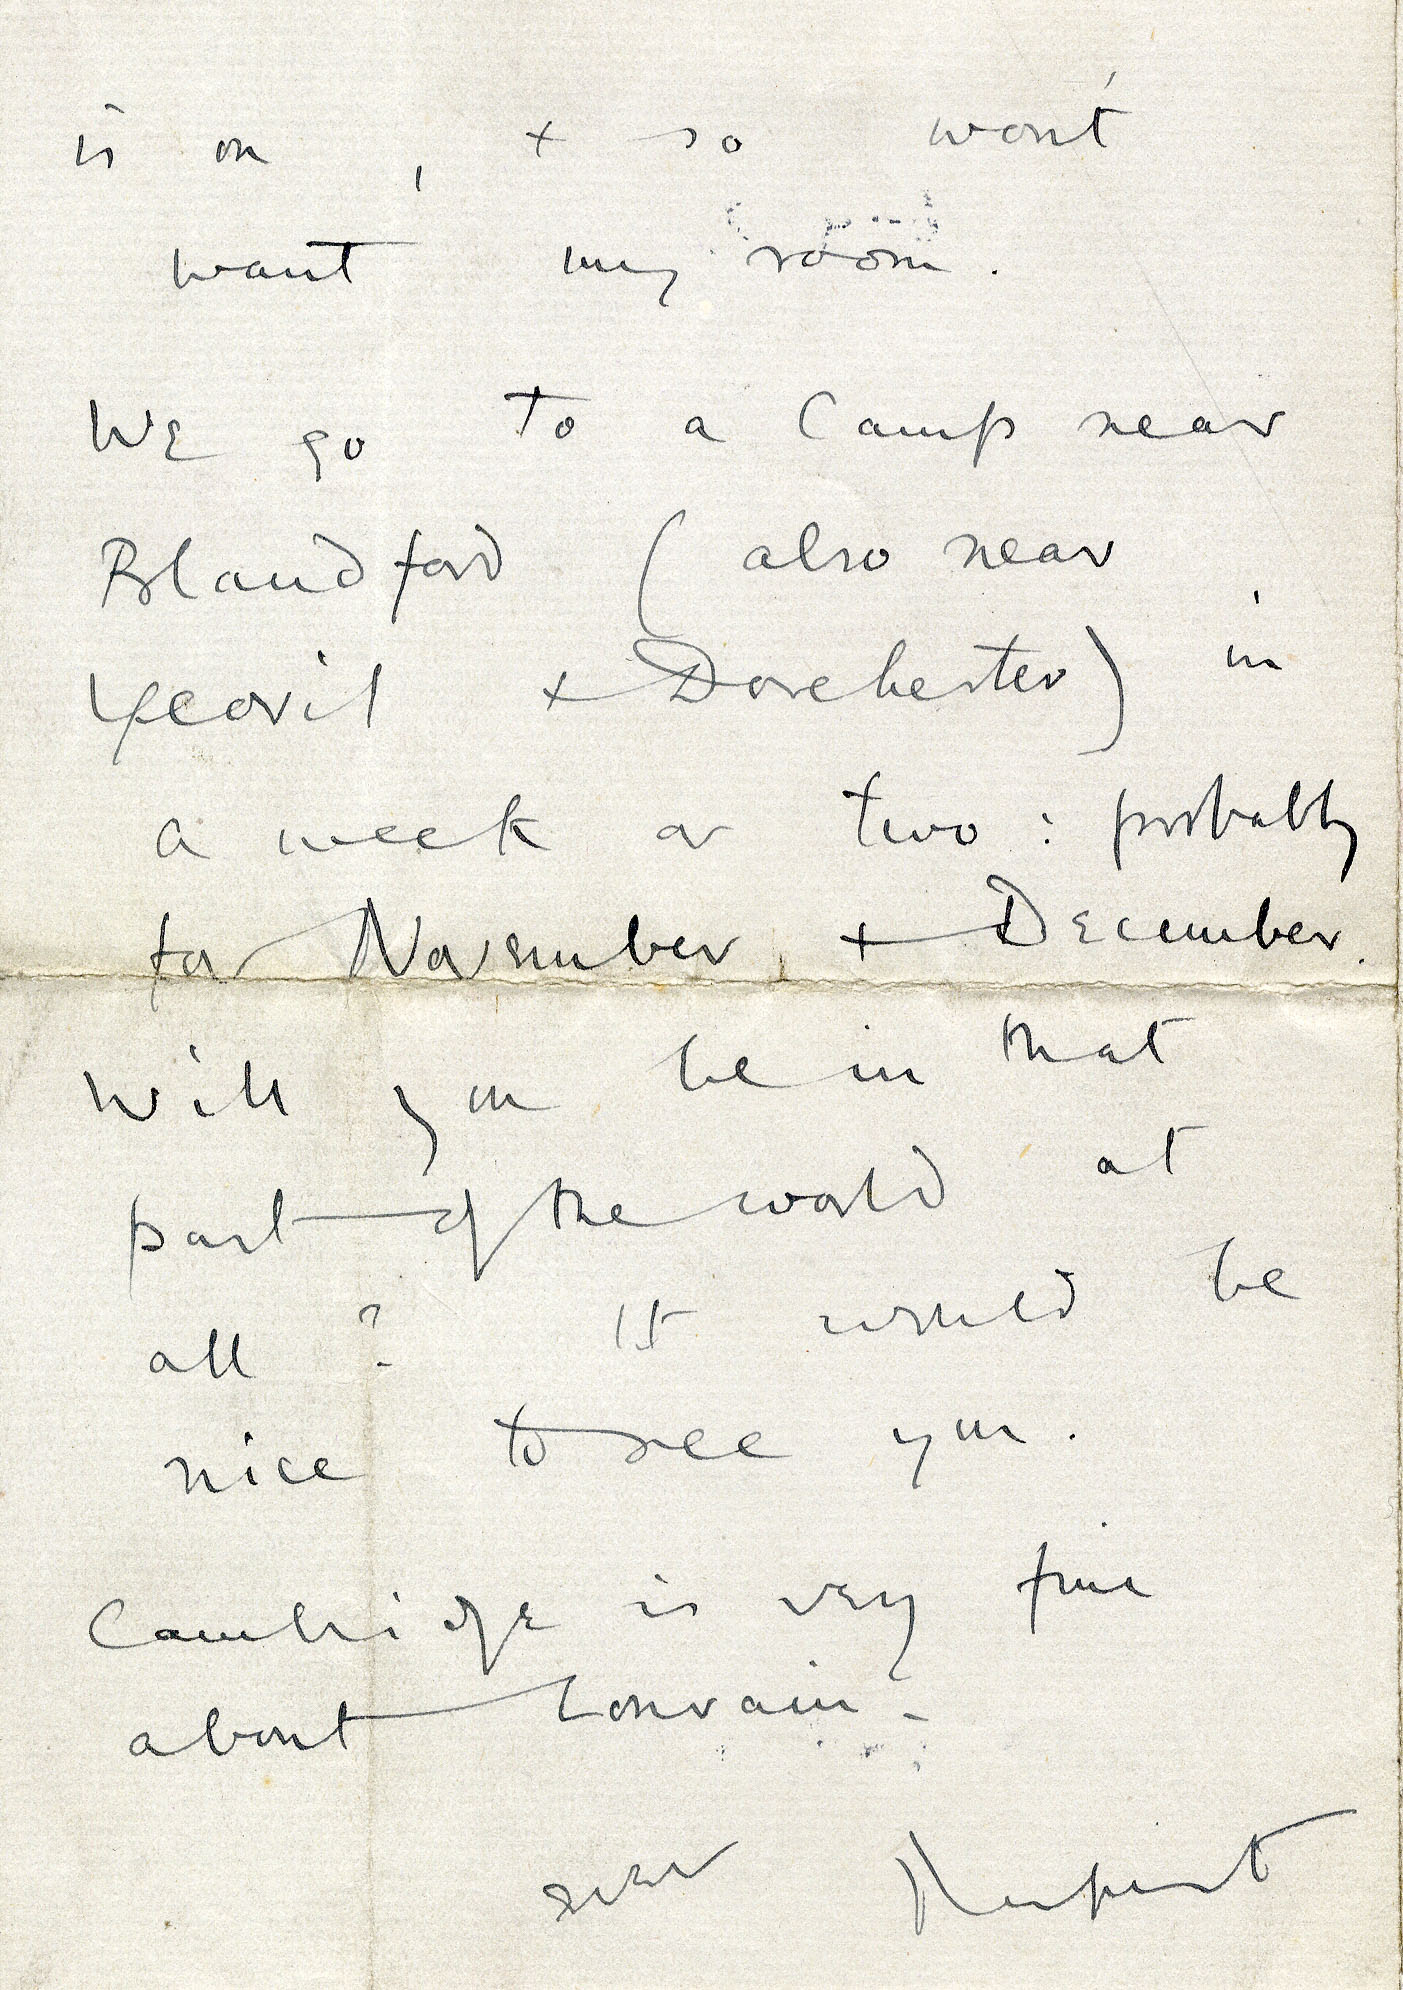 is on, + so won't
want my room.
We go to a Camp near
Blandford (also near
Yeovil + Dorchester) in
a week or two : probably
for November + December.
Will you be in that
part of the world at
all? It would be
nice to see you.
Cambridge is very fine
about Louvain.
ever Rupert